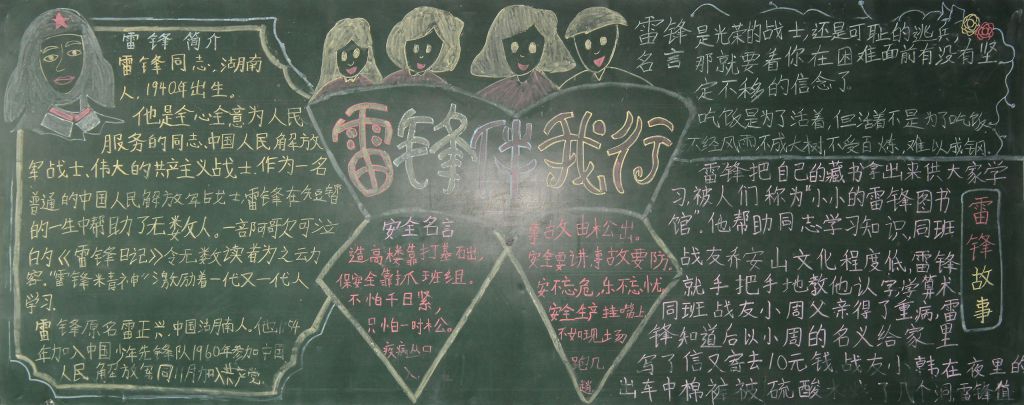 雷锋简介
雷锋同志,湖南
人,1940年出生。
他是全心全意为人民
服务的同志,中国人民解放
军战士、伟大的共产主义战士.作为一名
普通的中国人民解放军战士,雷锋在短暂
的一生中帮助了无数人。一部
的《雷锋日记》令无数读者为之动
容."雷锋精神"激励着一代又一代人
学习.
雷锋原名雷正兴,中国湖南人。他
年加入中国少年先锋队1960年参加中国
人民解放军同11月加入共产党。
雷锋伴我行
安全名言
造高楼靠打基础,
保安全靠抓班组。
不怕千日紧,
只怕一时松。
疾病从口
入
事故由松出。
安全要讲,事故要防,
安不忘危,乐不忘忧,
安全生产挂嘴上
不如现场
跑几
趟
雷锋
名言
是光荣的战士,还是可耻的逃兵,
那就要看你在困难面前有没有坚
定不移的信念了
吃饭是为了活着,但活着不是为了吃饭
不经风雨不成大树,不受百炼,难以成钢
雷锋故事
雷锋把自己的藏书拿出来供大家学
习,被人们称为"小小的雷锋图书
馆"。他帮助同志学习知识,同班
战友乔安山文化程度低,雷锋
就手把手地教他认字学算术
同班战友小周父亲得了重病,雷
锋知道后以小周的名义给家里
写了信又寄去10元钱,战友小韩在夜里的
出车中棉裤被硫酸水 了几个洞,雷锋值